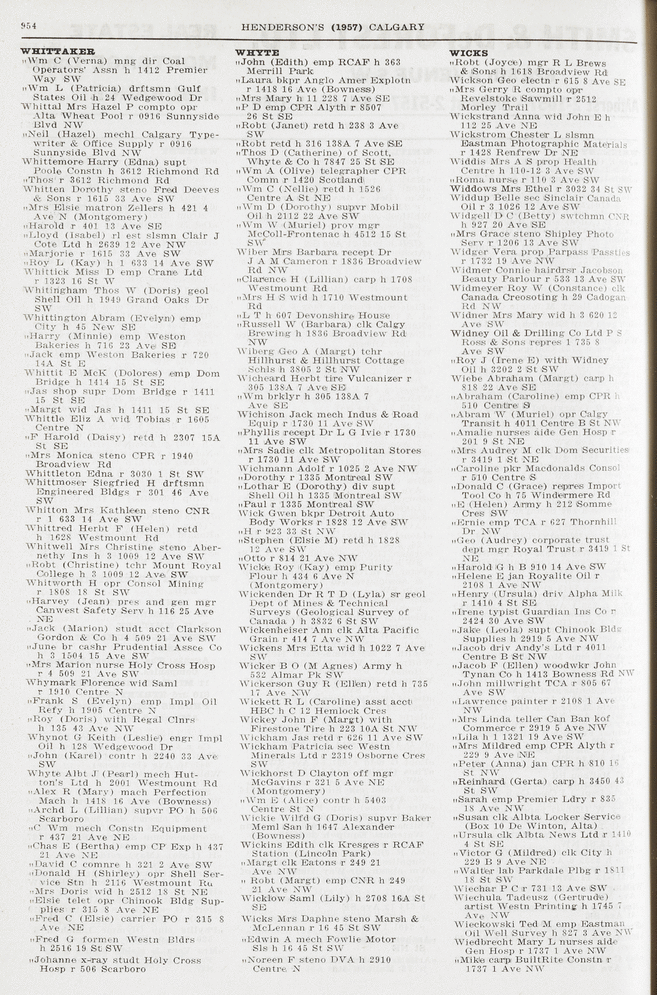 954
HENDERSON'S (1957) CALGARY
WHITTAKER
"Wm C (Verna) mng dir Coal
Operators' Assn h 1412 Premier
Way SW
"Wm L (Patricia) drftsmn Gulf
States Oil h 24 Wedgewood Dr
Whittal Mrs Hazel P compto opr
Alta Wheat Pool r 0916 Sunnyside
Blvd NW
"Neil (Hazel) mechl Calgary Type-
writer & Office Supply r 0916
Sunnyside Blvd NW
Whittemore Harry (Edna) supt
Poole Constn h 3612 Richmond Rd
"Thos r 3612 Richmond Rd
Whitten Dorothy steno Fred Deeves
& Sons r 1615 33 Ave SW
"Mrs Elsie matron Zellers h 421 4
Ave N (Montgomery)
"Harold r 401 13 Ave SE
"Lloyd (Isabel) rl est slsmn Clair J
Cote Ltd h 2639 12 Ave NW
"Marjorie r 1615 33 Ave SW
"Roy L (Kay) h 1 633 14 Ave SW
Whittick Miss D emp Crane Ltd
r 1323 16 St W
Whitingham Thos W (Doris) geol
Shell Oil h 1949 Grand Oaks Dr
SW
Whittington Abram (Evelyn) emp
City h 45 New SE
"Harry (Minnie) emp Weston
Bakeries h 716 23 Ave SE
"Jack emp Weston Bakeries r 720
14A St E
Whittit E McK (Dolores) emp Dom
Bridge h 1414 15 St SE
"Jas shop supr Dom Bridge r 1411
15 St SE
"Margt wid Jas h 1411 15 St SE
Whittle Eliz A wid Tobias r 1605
Centre N
"F Harold (Daisy) retd h 2307 15A
St SE
"Mrs Monica steno CPR r 1940
Broadview Rd
Whittleton Edna r 3030 1 St SW
Whittmoser Siegfried H drftsmn
Engineered Bldgs r 301 46 Ave
SW
Whitton Mrs Kathleen steno CNR
r 1 633 14 Ave SW
Whittred Herbt F (Helen) retd
h 1628 Westmount Rd
Whitwell Mrs Christine steno Aber-
nethy Ins h 3 1009 12 Ave SW
"Robt (Christine) tchr Mount Royal
College h 3 1009 12 Ave SW
Whitworth H opr Consol Mining
r 1808 18 St SW
"Harvey (Jean) pres and gen mgr
Canwest Safety Serv h 116 25 Ave
NE
"Jack (Marion) studt acct Clarkson
Gordon & Co h 4 509 21 Ave SW
"June br cashr Prudential Assce Co
h 3 1504 15 Ave SW
"Mrs Marion nurse Holy Cross Hosp
r 4 509 21 Ave SW
Whymark Florence wid Saml
r 1910 Centre N
"Frank S (Evelyn) emp Impl Oil
Refy h 1905 Centre N
"Roy (Doris) with Regal Clnrs
h 135 43 Ave NW
Whynot G Keith (Leslie) engr Impl
Oil h 128 Wedgewood Dr
"John (Karel) contr h 2240 33 Ave
SW
Whyte Albt J (Pearl) mech Hut-
ton's Ltd h 2001 Westmount Rd
"Alex R (Mary) mach Perfection
Mach h 1418 16 Ave (Bowness)
"Archd L (Lillian) supvr PO h 506
Scarboro
"C Wm mech Constn Equipment
r 437 21 Ave NE
"Chas E (Bertha) emp CP Exp h 437
21 Ave NE
"David C comnre h 321 2 Ave SW
"Donald H (Shirley) opr Shell Ser-
vice Stn h 2116 Westmount Rd
"Mrs Doris wid h 2512 18 St NE
"Elsie telet opr Chinook Bldg Sup-
plies r 315 8 Ave NE
"Fred C (Elsie) carrier PO r 315 8
Ave NE
"Fred G formen Westn Bldrs
h 2516 19 St SW
"Johanne x-ray studt Holy Cross
Hosp r 506 Scarboro
WHYTE
"John (Edith) emp RCAF h 363
Merrill Park
"Laura bkpr Anglo Amer Explotn
r 1418 16 Ave (Bowness)
"Mrs Mary h 11 228 7 Ave SE
"P D emp CPR Alyth r 8507
26 St SE
"Robt (Janet) retd h 238 3 Ave
SW
"Robt retd h 316 138A 7 Ave SE
"Thos D (Catherine) of Scott,
Whyte & Co h 7847 25 St SE
"Wm A (Olive) telegrapher CPR
Comm r 1420 Scotland
"Wm C (Nellie) retd h 1526
Centre A St NE
"Wm D (Dorothy) supvr Mobil
Oil h 2112 22 Ave SW
"Wm W (Muriel) prov mgr
McColl-Frontenac h 4512 15 St
SW
Wiber Mrs Barbara recept Dr
J A M Cameron r 1836 Broadview
Rd NW
"Clarence H (Lillian) carp h 1708
Westmount Rd
"Mrs H S wid h 1710 Westmount
Rd
"L T h 607 Devonshire House
"Russell W (Barbara) clk Calgy
Brewing h 1836 Broadview Rd
NW
Wiberg Geo A (Margt) tchr
Hillhurst & Hillhurst Cottage
Schls h 3805 2 St NW
Wicheard Herbt tire Vulcanizer r
305 138A 7 Ave SE
"Wm brklyr h 305 138A 7
Ave SE
Wichison Jack mech Indus & Road
Equip r 1730 11 Ave SW
"Phyllis recept Dr L G Ivie r 1730
11 Ave SW
"Mrs Sadie clk Metropolitan Stores
r 1730 11 Ave SW
Wichmann Adolf r 1025 2 Ave NW
"Dorothy r 1335 Montreal SW
"Lothar E (Dorothy) div supt
Shell Oil h 1335 Montreal SW
"Paul r 1335 Montreal SW
Wick Gwen bkpr Detroit Auto
Body Works r 1828 12 Ave SW
"H r 923 33 St NW
"Stephen (Elsie M) retd h 1828
12 Ave SW
"Otto r 814 21 Ave NW
Wicke Roy (Kay) emp Purity
Flour h 434 6 Ave N
(Montgomery)
Wickenden Dr R T D (Lyla) sr geol
Dept of Mines & Technical
Surveys (Geological Survey of
Canada ) h 3832 6 St SW
Wickenheiser Ann clk Alta Pacific
Grain r 414 7 Ave NW
Wickens Mrs Etta wid h 1022 7 Ave
SW
Wicker B O (M Agnes) Army h
532 Almar Pk SW
Wickerson Guy R (Ellen) retd h 735
17 Ave NW
Wickett R L (Caroline) asst acct
HBC h C 12 Hemlock Cres
Wickey John F (Margt) with
Firestone Tire h 223 10A St NW
Wickham Jas retd r 626 11 Ave SW
Wickham Patricia sec Westn
Minerals Ltd r 2319 Osborne Cres
SW
Wickhorst D Clayton off mgr
McGavins r 321 5 Ave NE
(Montgomery)
"Wm E (Alice) contr h 5403
Centre St N
Wickie Wilfd G (Doris) supvr Baker
Meml San h 1647 Alexander
(Bowness)
Wickins Edith clk Kresges r RCAF
Station (Lincoln Park)
"Margt clk Eatons r 249 21
Ave NW
" Robt (Margt) emp CNR h 249
21 Ave NW
Wicklow Saml (Lily) h 2708 16A St
SE
Wicks Mrs Daphne steno Marsh &
McLennan r 16 45 St SW
"Edwin A mech Fowlie Motor
Sls h 16 45 St SW
"Noreen F steno DVA h 2910
Centre N
WICKS
"Robt (Joyce) mgr R L Brews
& Sons h 1618 Broadview Rd
Wickson Geo electn r 615 8 Ave SE
"Mrs Gerry R compto opr
Revelstoke Sawmill r 2512
Morley Trail
Wickstrand Anna wid John E h
112 25 Ave NE
Wickstrom Chester L slsmn
Eastman Photographic Materials
r 1428 Renfrew Dr NE
Widdis Mrs A S prop Health
Centre h 110-12 3 Ave SW
"Roma nurse r 110 3 Ave SW
Widdows Mrs Ethel r 3032 34 St SW
Widdup Belle sec Sinclair Canada
Oil r 3 1026 12 Ave SW
Widgell D C (Betty) swtchmn CNR
h 927 20 Ave SE
"Mrs Grace steno Shipley Photo
Serv r 1206 13 Ave SW
Widger Vera prop Parpass Pasties
r 1732 19 Ave NW
Widmer Connie hairdrsr Jacobson
Beauty Parlour r 533 13 Ave SW
Widmeyer Roy W (Constance) clk
Canada Creosoting h 29 Cadogan
Rd NW
Widner Mrs Mary wid h 3 620 12
Ave SW
Widney Oil & Drilling Co Ltd P S
Ross & Sons repres 1 735 8
Ave SW
"Roy J (Irene E) with Widney
Oil h 3202 2 St SW
Wiebe Abraham (Margt) carp h
818 22 Ave SE
"Abraham (Caroline) emp CPR h
510 Centre S
"Abram W (Muriel) opr Calgy
Transit h 4011 Centre B St NW
"Amalie nurses aide Gen Hosp r
201 9 St NE
"Mrs Audrey M clk Dom Securities
r 3419 1 St NE
"Caroline pkr Macdonalds Consol
r 510 Centre S
"Donald C (Grace) repres Import
Tool Co h 75 Windermere Rd
"E (Helen) Army h 212 Somme
Cres SW
"Ernie emp TCA r 627 Thornhill
Dr NW
"Geo (Audrey) corporate trust
dept mgr Royal Trust r 3419 1 St
NE
"Harold G h B 910 14 Ave SW
"Helene E jan Royalite Oil r
2108 1 Ave NW
"Henry (Ursula) driv Alpha Milk
r 1410 4 St SE
"Irene typist Guardian Ins Co r
2424 30 Ave SW
"Jake (Leola) supt Chinook Bldg
Supplies h 2919 5 Ave NW
"Jacob driv Andy's Ltd r 4011
Centre B St NW
"Jacob F (Ellen) woodwkr John
Tynan Co h 1413 Bowness Rd NW
"John millwright TCA r 805 67
Ave SW
"Lawrence painter r 2108 1 Ave
NW
"Mrs Linda teller Can Ban kof
Commerce r 2919 5 Ave NW
"Lila h 1 1321 19 Ave SW
"Mrs Mildred emp CPR Alyth r
229 9 Ave NE
"Peter (Anna) jan CPR h 810 16
St NW
"Reinhard (Gerta) carp h 3450 43
St SW
"Sarah emp Premier Ldry r 835
18 Ave NW
"Susan clk Albta Locker Service
(Box 10 De Winton, Alta)
"Ursula clk Albta News Ltd r 1410
4 St SE
"Victor G (Mildred) clk City h
229 B 9 Ave NE
"Walter lab Parkdale Plbg r 1811
18 St SW
Wiechar P C r 731 13 Ave SW
Wiechula Tadeusz (Gertrude)
artist Westn Printing h 1745 7
Ave NW
Wieckowski Ted M emp Eastman
Oil Well Survey h 827 3 Ave NW
Wiedbrecht Mary L nurses aide
Gen Hosp r 1737 1 Ave NW
"Mike carp BuiltRite Constn r
1737 1 Ave NW